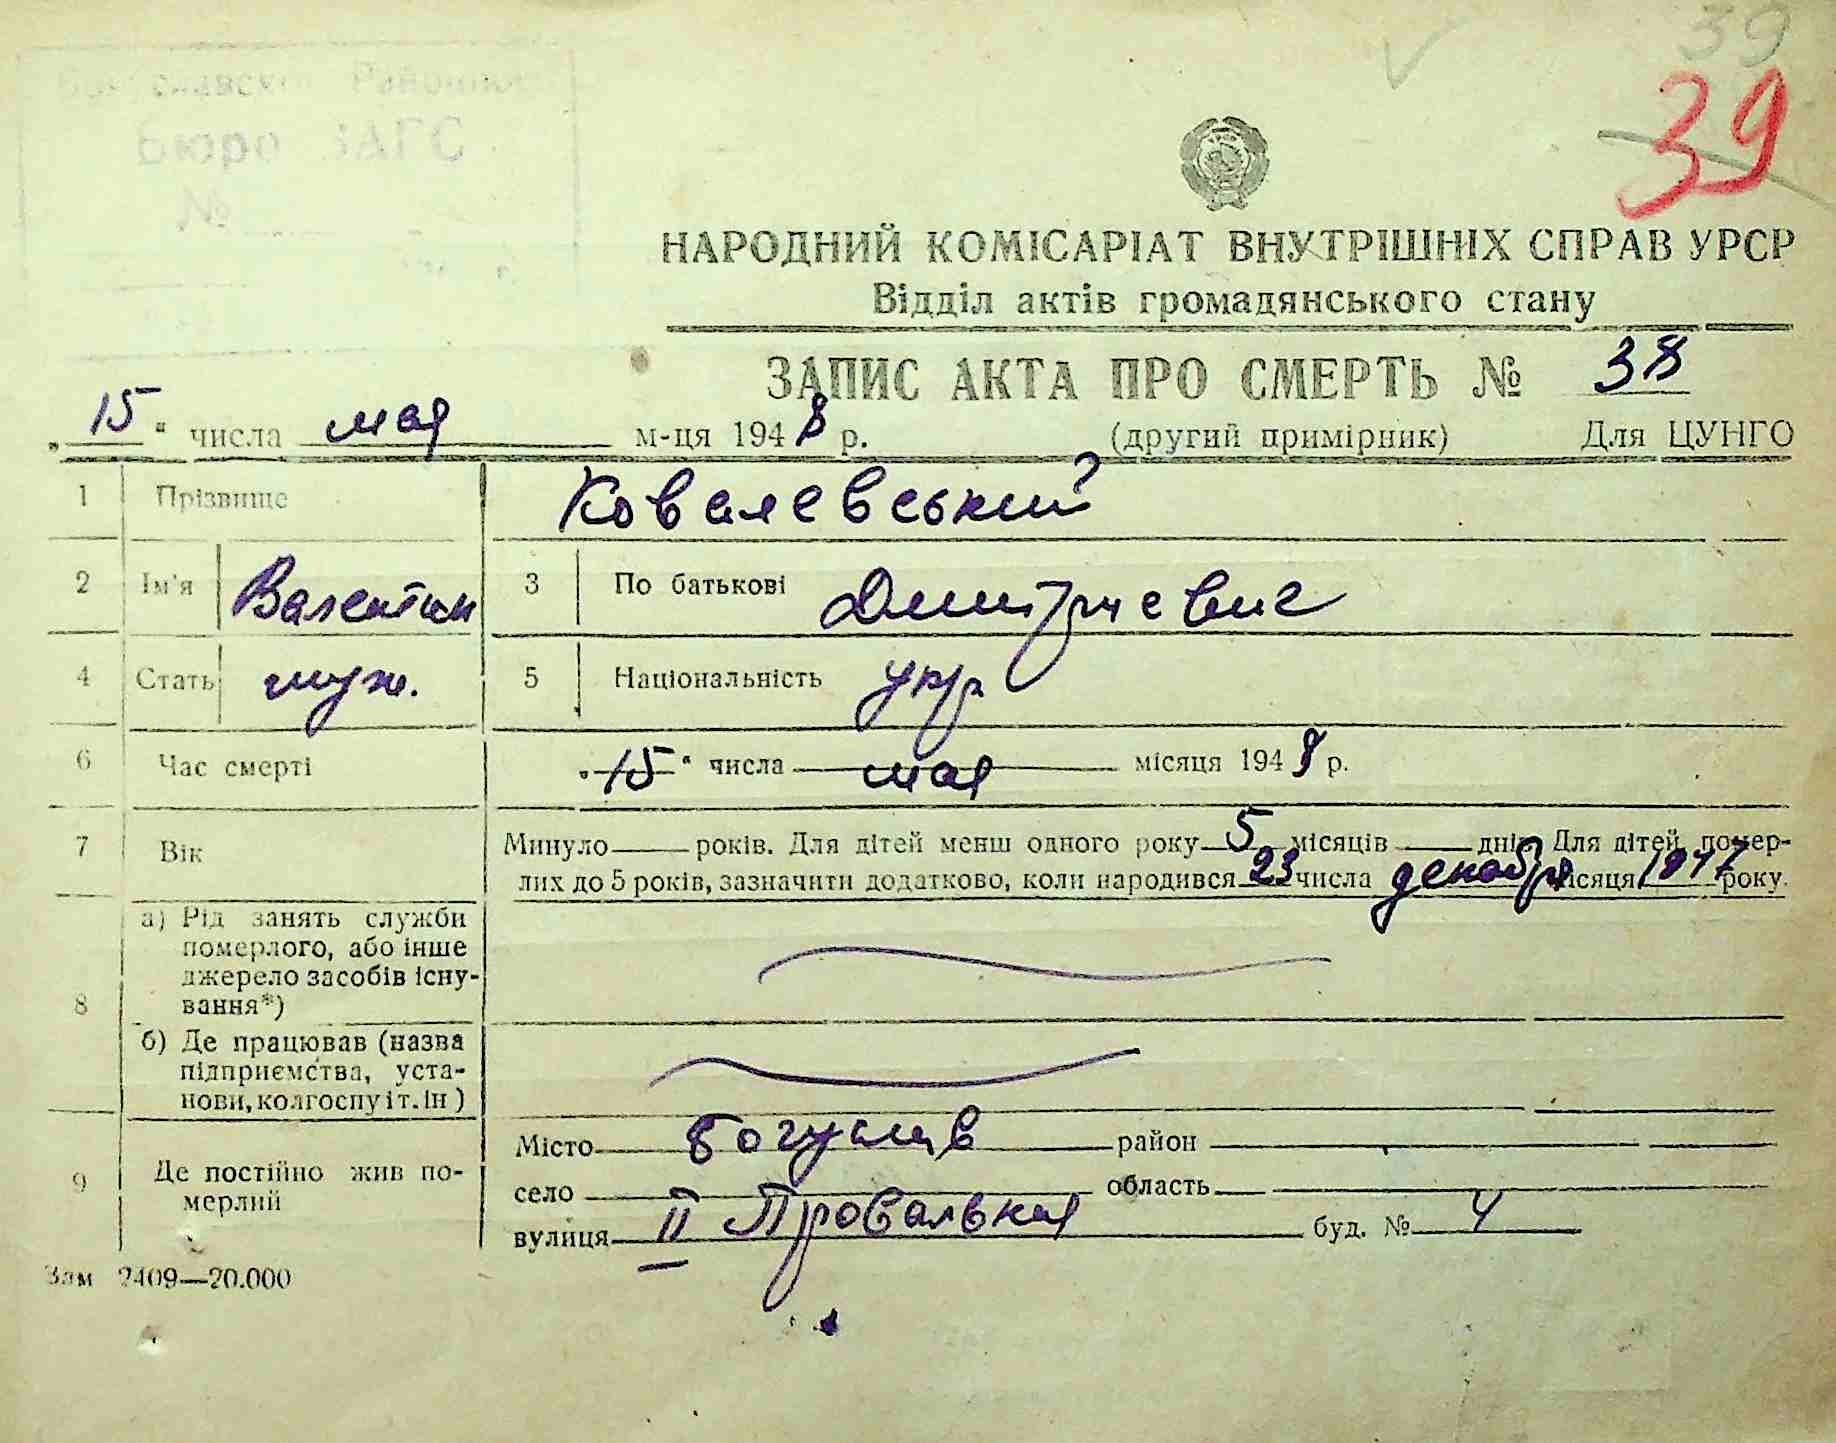 39
39
Бюро ЗАГС
№
НАРОДНИЙ КОМІСАРІАТ ВНУТРІШНІХ СПРАВ УРСР
Відділ актів громадянського стану
ЗАПИС АКТА ПРО СМЕРТЬ № 38
„15“ числа мая м-ця 1948 р. (другий примірник) Для ЦУНГО
1 Прізвище Ковалевський
2 Ім'я Валентин 3 По батькові Дмитриевич
4 Стать муж. 5 Національність укр
6 Час смерті „15“ числа мая місяця 1948 р.
7 Вік Минуло років. Для дітей менш одного року 5 місяців днів Для дітей, помер-
лих до 5 років, зазначити додатково, коли народився 23 числа декабря місяця 1947 року.
8 а) Рід занять служби
померлого, або інше
джерело засобів існу-
вання*)
б) Де працював (назва
підприємства, уста-
нови, колгоспу і т. ін)
9 Де постійно жив по-
мерлий
Місто Богуслав район
село область
вулиця II Провальная буд. № 4
Зам 2409—20.000